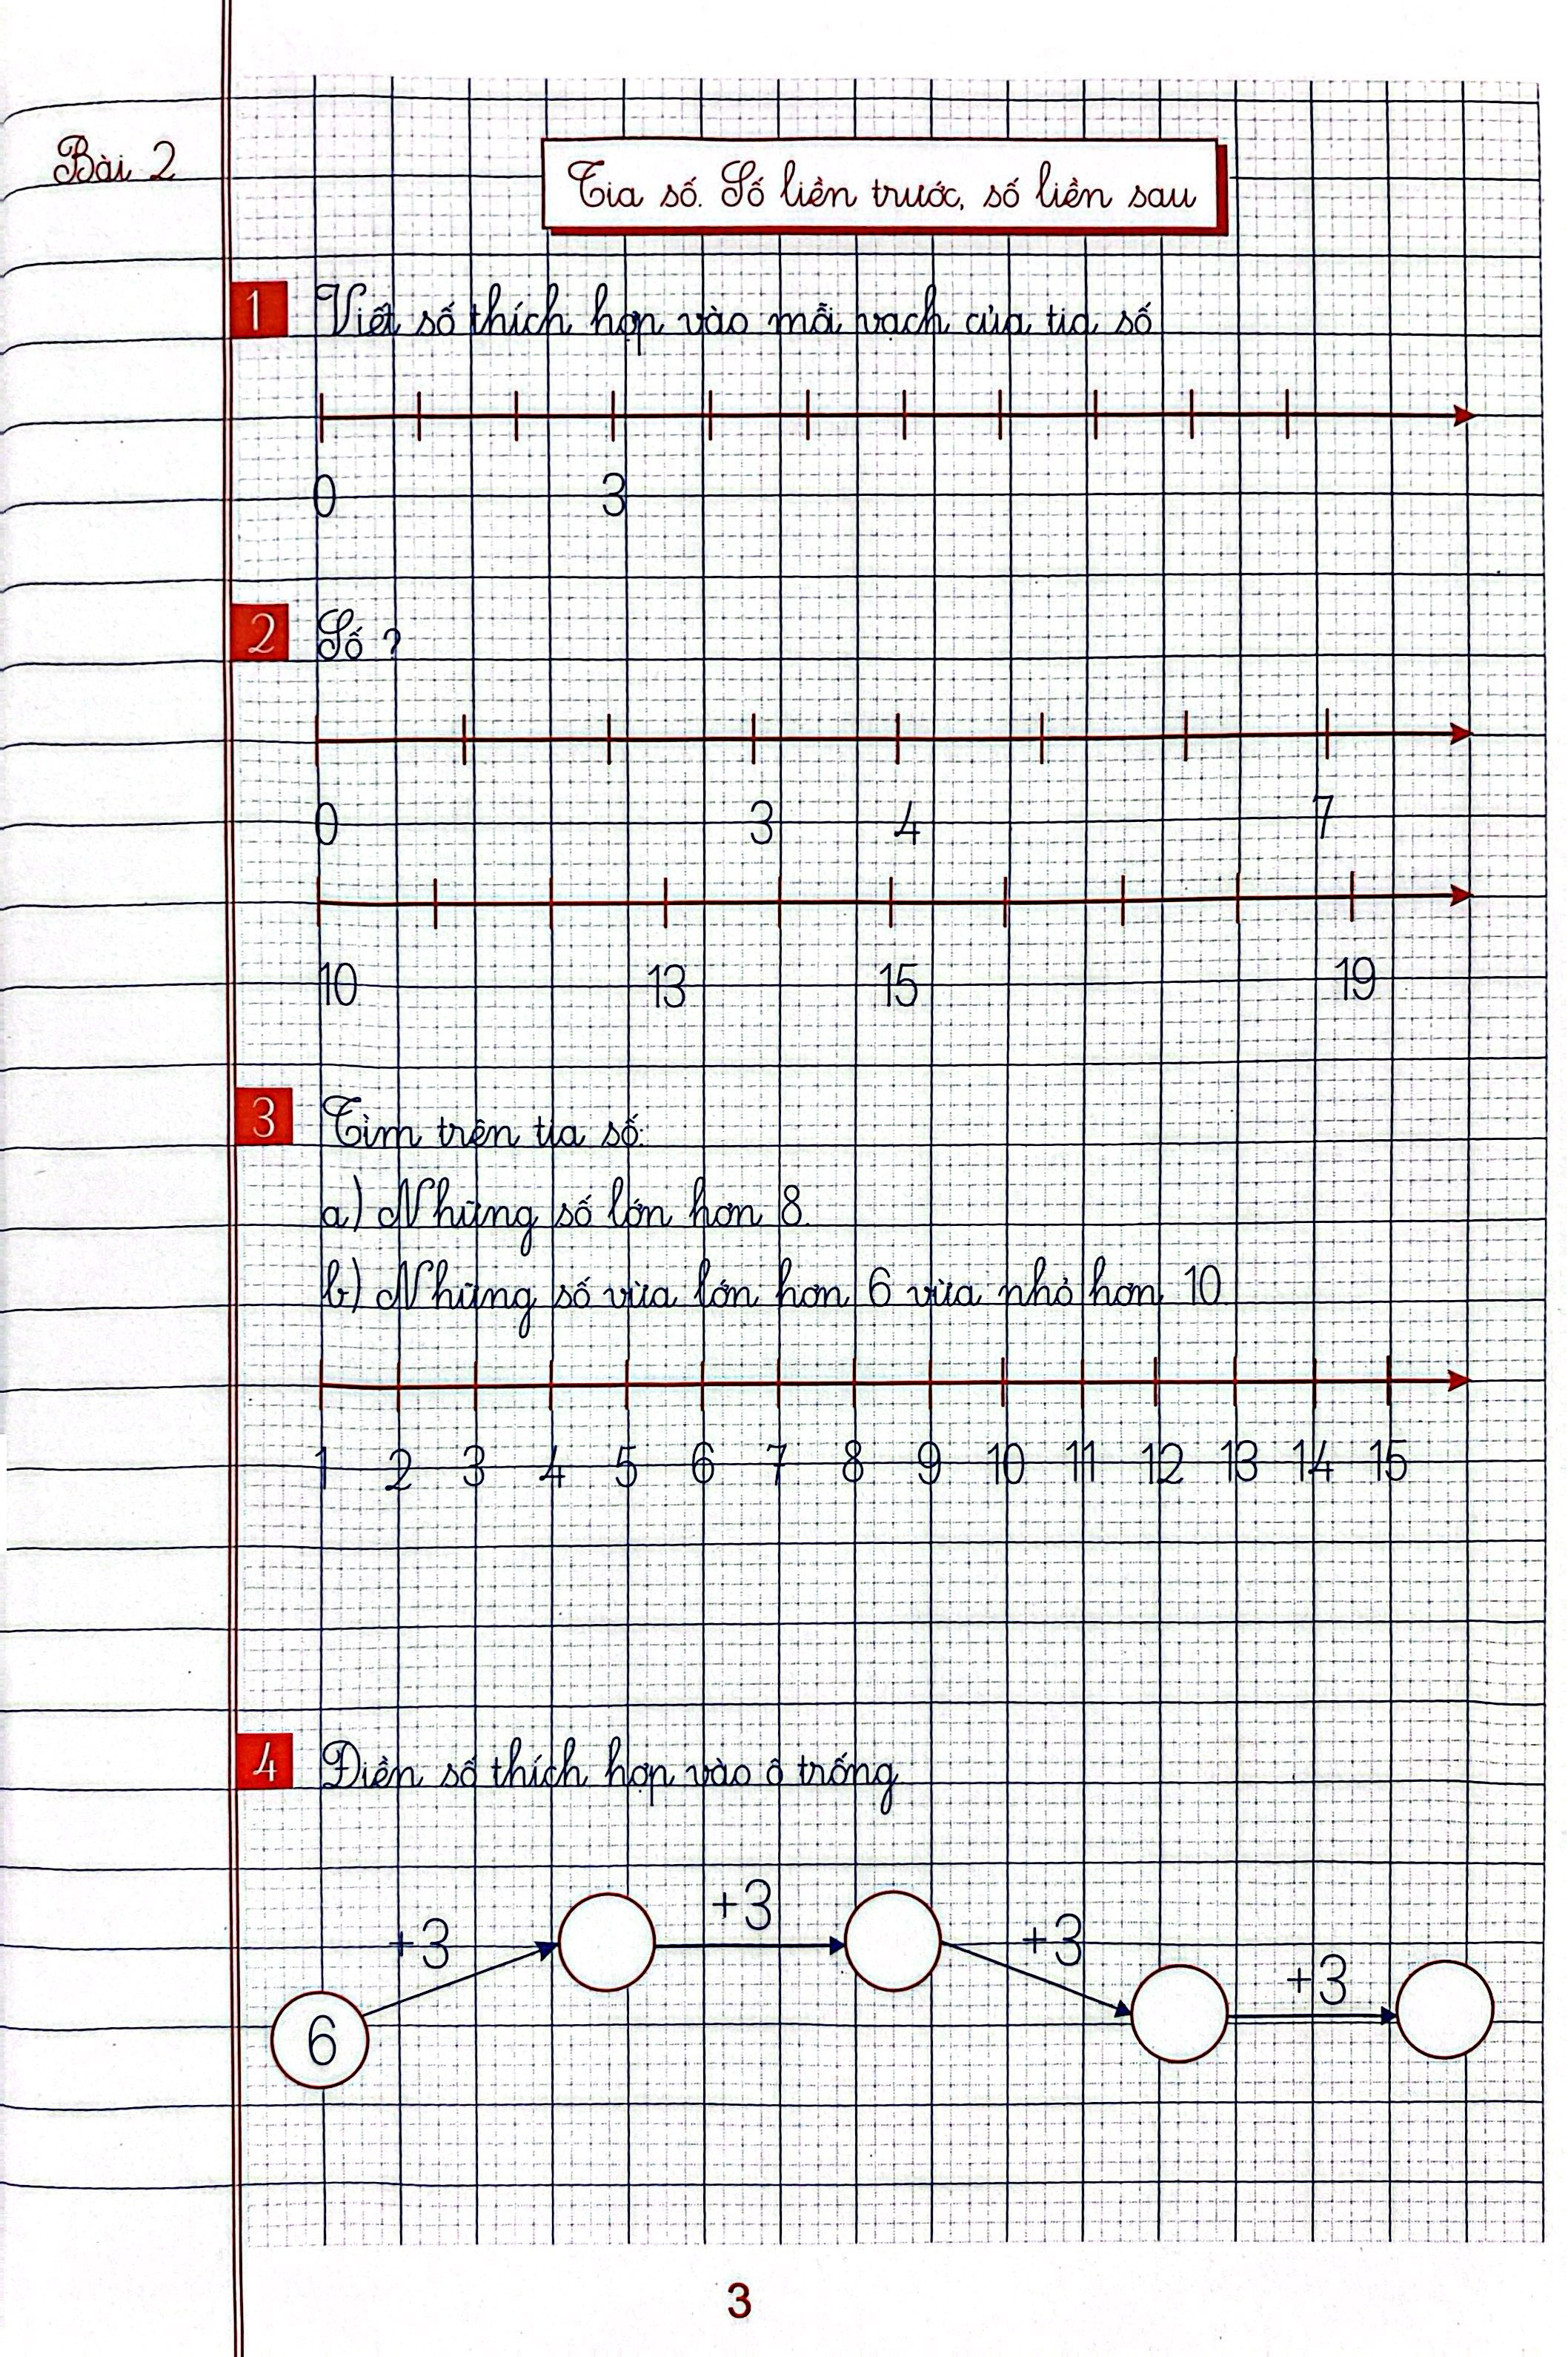 Bài 2
Tia số. Số liền trước, số liền sau
1 Viết số thích hợp vào mỗi vạch của tia số
0 3
2 Số ?
0 3 4 7
10 13 15 19
3 Tìm trên tia số:
a) Những số lớn hơn 8.
b) Những số vừa lớn hơn 6 vừa nhỏ hơn 10.
1 2 3 4 5 6 7 8 9 10 11 12 13 14 15
4 Điền số thích hợp vào ô trống
+3 +3 +3 +3
6
3